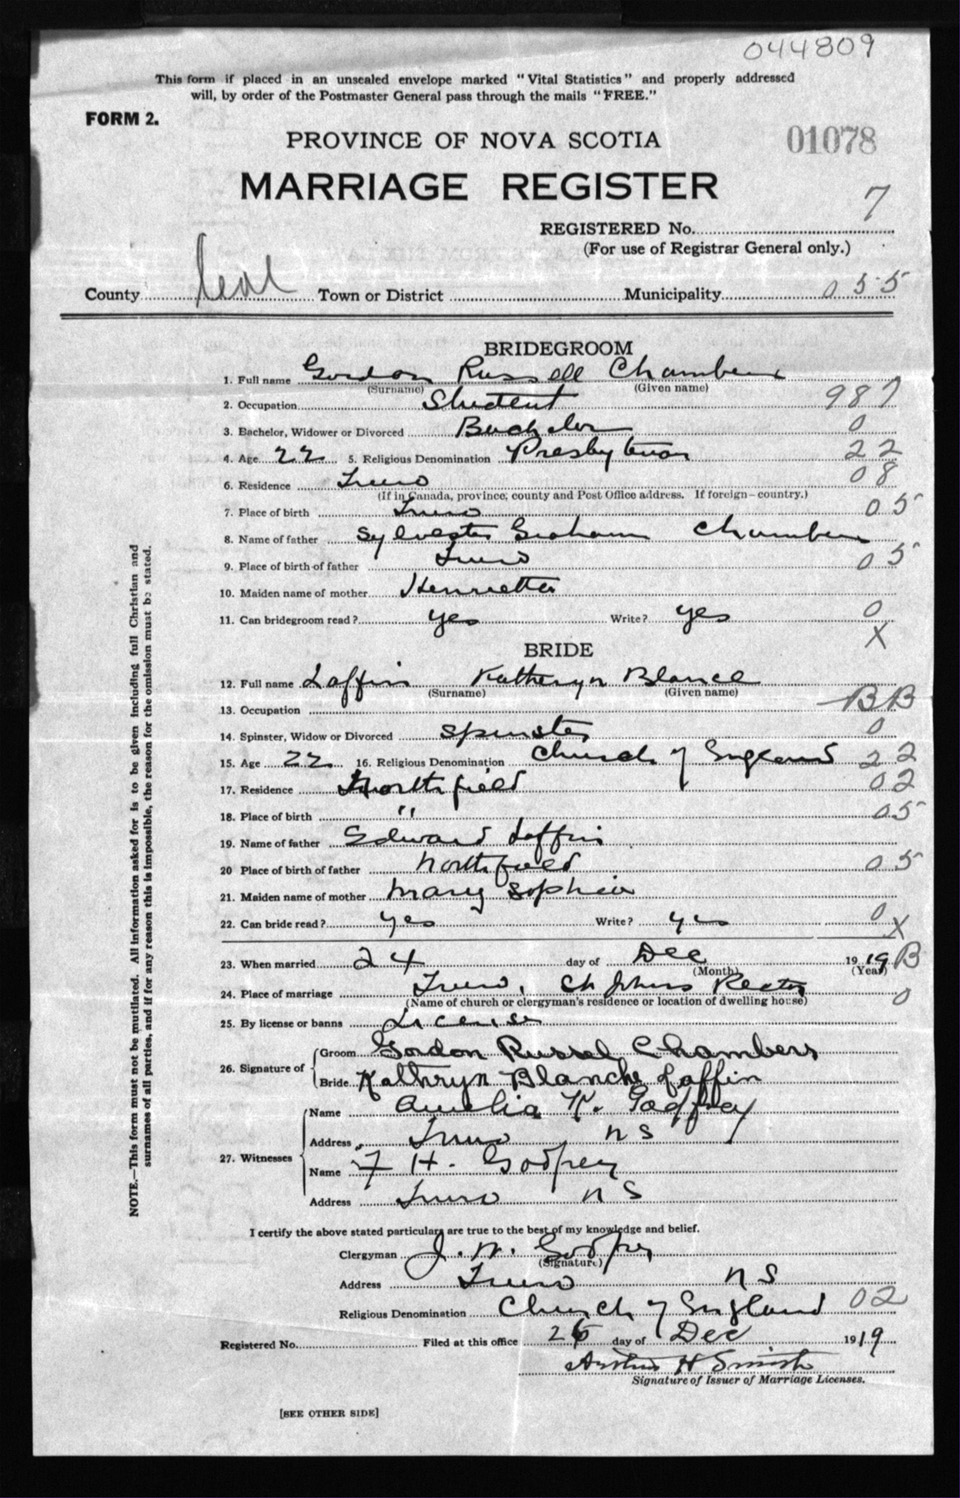 044809
This form if placed in an unsealed envelope marked "Vital Statistics" and properly addressed
will, by order of the Postmaster General pass through the mails "FREE."
FORM 2.
PROVINCE OF NOVA SCOTIA
01078
MARRIAGE REGISTER
7
REGISTERED No.
(For use of Registrar General only.)
County Town or District Municipality 055
BRIDEGROOM
1. Full name Gordon Russell Chambers
(Surname) (Given name)
2. Occupation Student 987
3. Bachelor, Widower or Divorced Bachelor 0
4. Age 22 5. Religious Denomination Presbyterian 22
6. Residence Truro 08
(If in Canada, province, county and Post Office address. If foreign—country.)
7. Place of birth Truro 05
8. Name of father Sylvester Graham Chambers
9. Place of birth of father Truro 05
10. Maiden name of mother Henrietta
11. Can bridegroom read? yes Write? yes 0
X
BRIDE
12. Full name Laffin Katheryn Blance
(Surname) (Given name)
13. Occupation BB
14. Spinster, Widow or Divorced Spinster 0
15. Age 22 16. Religious Denomination Church of England 22
17. Residence Northfield 02
18. Place of birth " 05
19. Name of father Edward Laffin
20 Place of birth of father Northfield 05
21. Maiden name of mother Mary Sophia
22. Can bride read? yes Write? yes 0
X
23. When married 24 day of Dec 1919 B
(Month) (Year)
24. Place of marriage Truro, St Johns Rectory 0
(Name of church or clergyman's residence or location of dwelling house)
25. By license or banns License
26. Signature of Groom Gordon Russel Chambers
Bride Kathryn Blanche Laffin
27. Witnesses
Name Amelia K. Godfrey
Address Truro NS
Name F H. Godfrey
Address Truro NS
I certify the above stated particulars are true to the best of my knowledge and belief.
Clergyman J. W. Godfrey
(Signature)
Address Truro NS
Religious Denomination Church of England 02
Registered No. Filed at this office 26 day of Dec 1919
Arthur H Smith
Signature of Issuer of Marriage Licenses.
[SEE OTHER SIDE]
NOTE.—This form must not be mutilated. All information asked for is to be given including full Christian and
surnames of all parties, and if for any reason this is impossible, the reason for the omission must be stated.